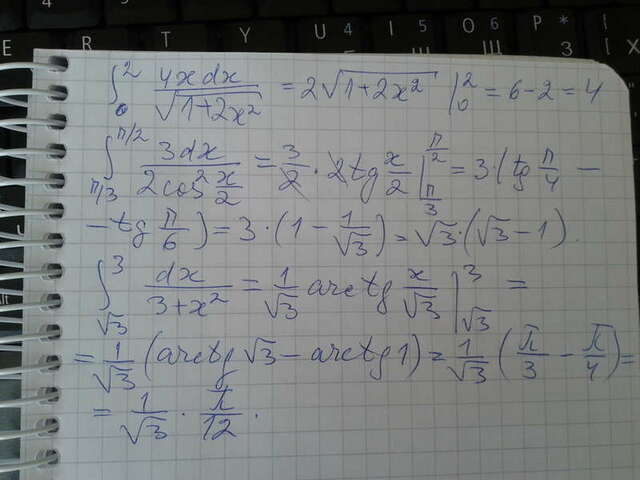 E R T Y U I O P
∫₀² 4xdx/√(1+2x²) = 2√(1+2x²) |₀² = 6-2 = 4
∫_{π/3}^{π/2} 3dx/(2cos² x/2) = 3/2 · 2tg x/2 |_{π/3}^{π/2} = 3·(tg π/4 -
- tg π/6) = 3·(1 - 1/√3) = √3·(√3-1).
∫_{√3}^{3} dx/(3+x²) = 1/√3 arctg x/√3 |_{√3}^{3} =
= 1/√3 (arctg √3 - arctg 1) = 1/√3 (π/3 - π/4) =
= 1/√3 · π/12.